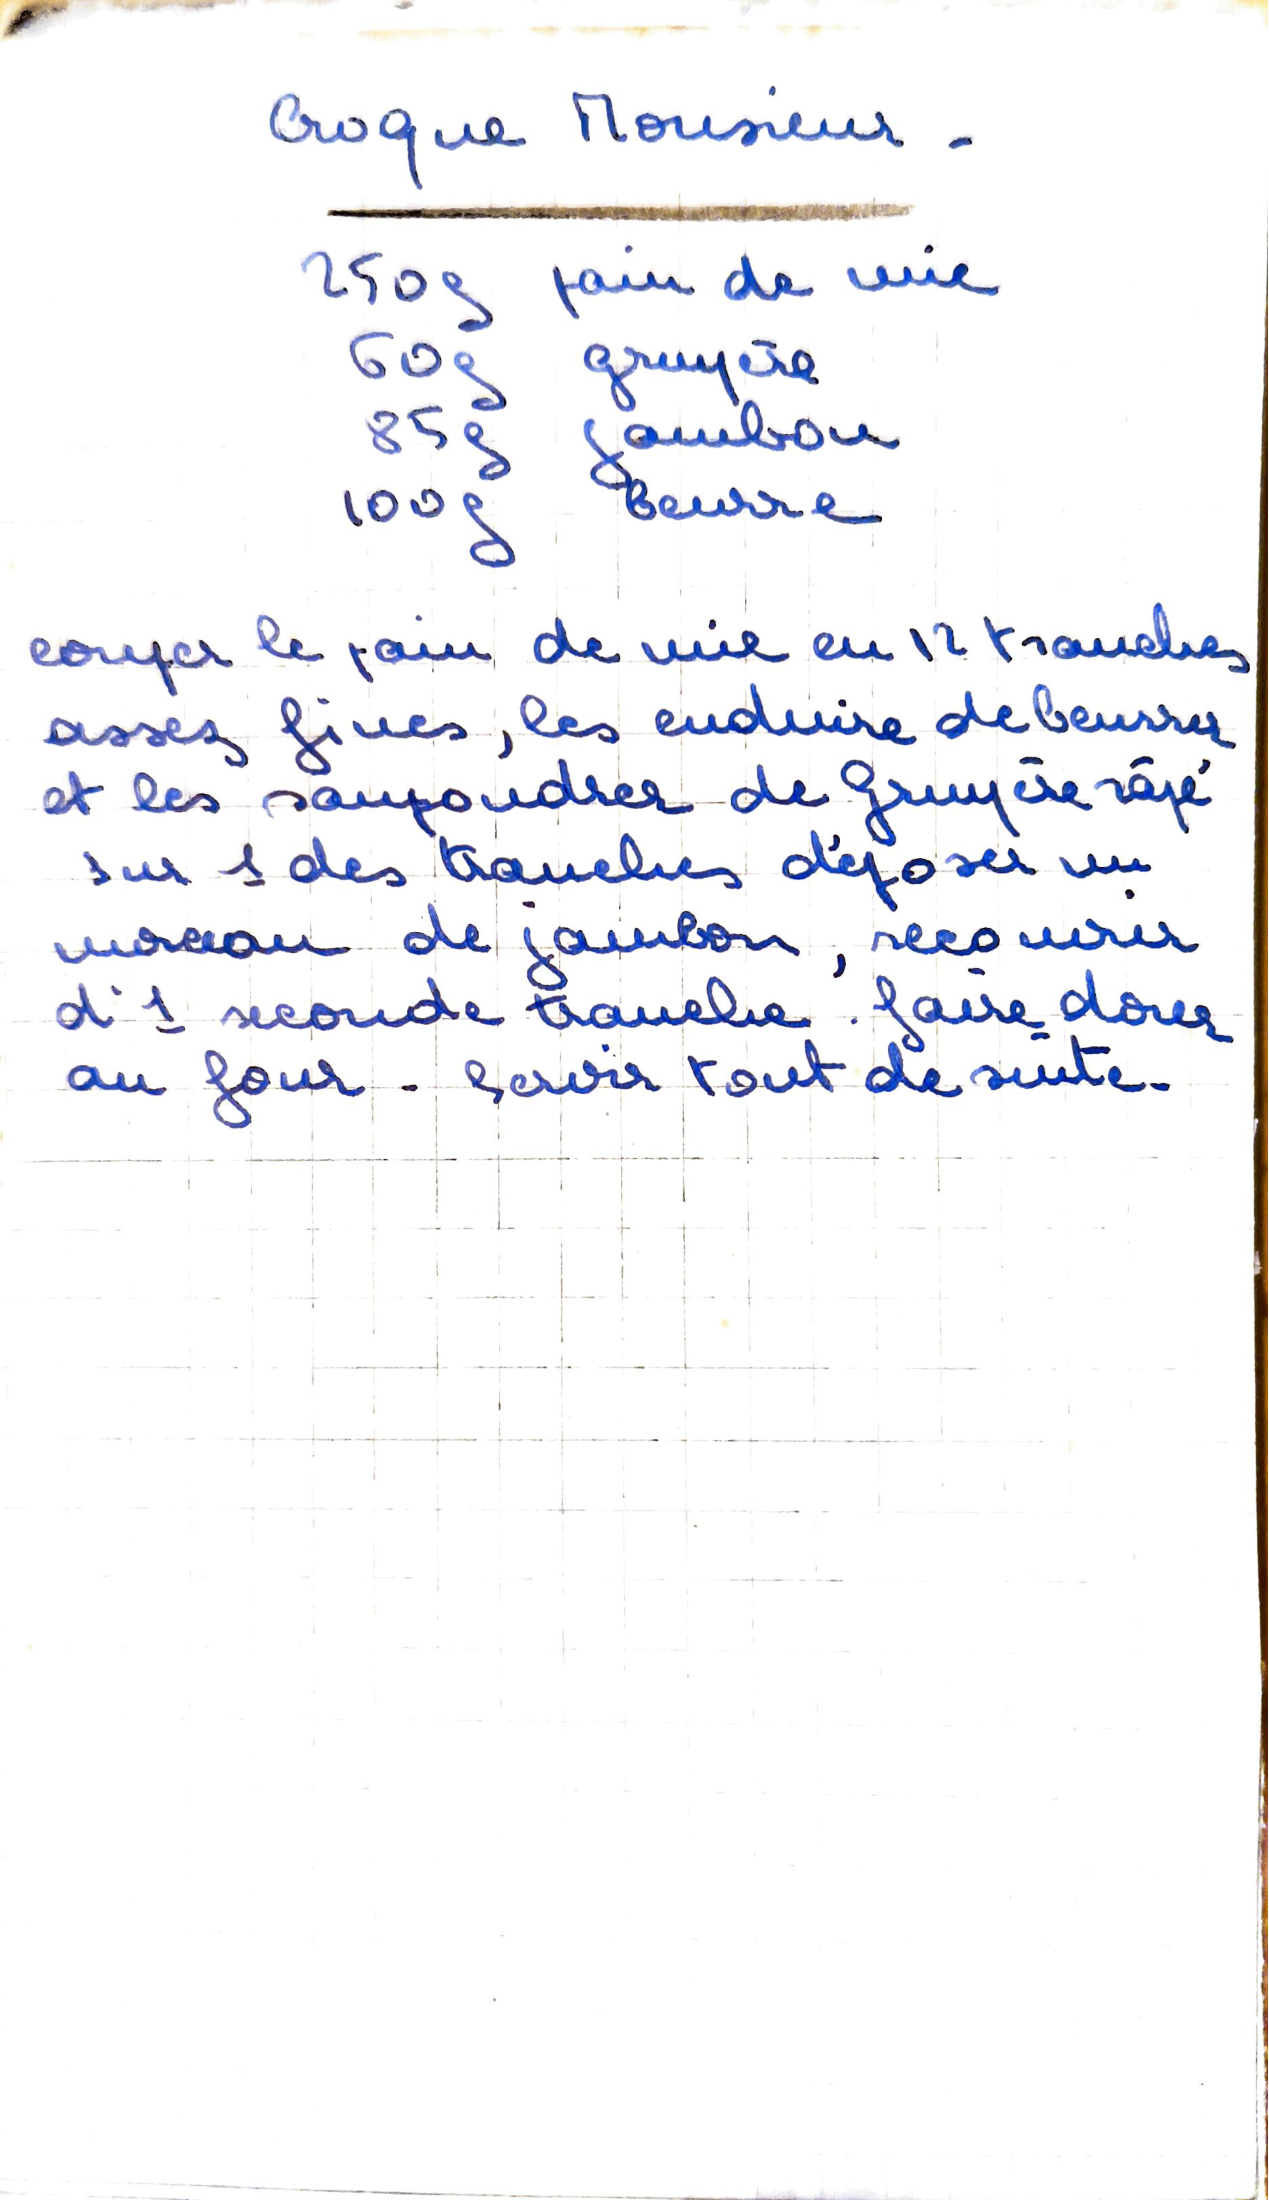 Croque Monsieur -
250g pain de mie
60g gruyère
85g jambon
100g beurre
couper le pain de mie en 12 tranches
assez fines, les enduire de beurre
et les saupoudrer de Gruyère râpé
sur 1 des tranches déposer un
morceau de jambon, recouvrir
d'1 seconde tranche. faire dorer
au four - Servir tout de suite -